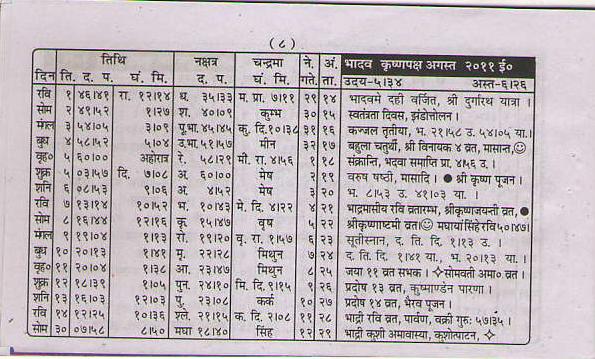 (८)
तिथि नक्षत्र चन्द्रमा ने. अं. भादव कृष्णपक्ष अगस्त २०११ ई०
दिन ति. द. प. घं. मि. द. प. घं. मि. गते. ता. उदय-५।३४ अस्त-६।२६
रवि १ ४६।४१ रा. १२।१४ ध. ३५।३३ म. प्रा. ७।११ २९ १४ भादवमे दही वर्जित, श्री दुर्गारथ यात्रा ।
सोम २ ४९।५२ १।२७ श. ४०।०९ कुम्भ ३० १५ स्वतंत्रता दिवस, झंडोत्तोलन ।
मंगल ३ ५४।०५ ३।०९ पू.भा. ४५।४५ कु. दि.१०।३८ ३१ १६ कज्जल तृतीया, भ. २१।५८ उ. ५४।०५ या. ।
बुध ४ ५८।५२ ५।०४ उ.भा. ५१।५७ मीन ३२ १७ बहुला चतुर्थी, श्री विनायक ४ व्रत, मासान्त,
वृह० ५ ६०।०० अहोरात्र रे. ५८।२९ मी. रा. ४।५६ १ १८ संक्रान्ति, भदवा समाप्ति प्रा. ४।५६ उ. ।
शुक्र ५ ०३।५७ दि. ७।०८ अ. ६०।०० मेष २ १९ वरुष षष्ठी, मासादि । ● श्री कृष्ण पूजन ।
शनि ६ ०८।५३ ९।०६ अ. ४।५२ मेष ३ २० भ. ८।५३ उ. ४१।०३ या. ।
रवि ७ १३।१४ १०।५२ भ. १०।४३ मे. दि. ४।२२ ४ २१ भाद्रमासीय रवि व्रतारम्भ, श्रीकृष्णजयन्ती व्रत, ●
सोम ८ १६।४४ १२।१६ कृ. १५।४७ वृष ५ २२ श्रीकृष्णाष्टमी व्रत मघायांसिंहेरवि ५०।४७।
मंगल ९ १९।०४ १।१३ रो. १९।२० वृ. रा. १।५७ ६ २३ सूतीस्नान, द. ति. दि. १।१३ उ. ।
बुध १० २०।१३ १।४१ मृ. २२।२८ मिथुन ७ २४ द. ति. दि. १।४१ या., भ. २०।१३ या. ।
वृह० ११ २०।०४ १।३८ आ. २३।४७ मिथुन ८ २५ जया ११ व्रत सभक । ✧सोमवती अमा० व्रत ।
शुक्र १२ १८।३९ १।०५ पुन. २४।१० मि. दि. ९।१५ ९ २६ प्रदोष १३ व्रत, कुष्माण्डेन पारणा ।
शनि १३ १६।०३ १२।०३ पु. २३।०८ कर्क १० २७ प्रदोष १४ व्रत, भैरव पूजन ।
रवि १४ १२।२५ १०।३६ श्ले. २१।१५ क. दि. २।०८ ११ २८ भाद्री रवि व्रत, पार्वण, वक्री गुरुः ५७।३५ ।
सोम ३० ०७।५८ ८।५० मघा १८।४० सिंह १२ २९ भाद्री कुशी अमावास्या, कुशोत्पाटन, ✧